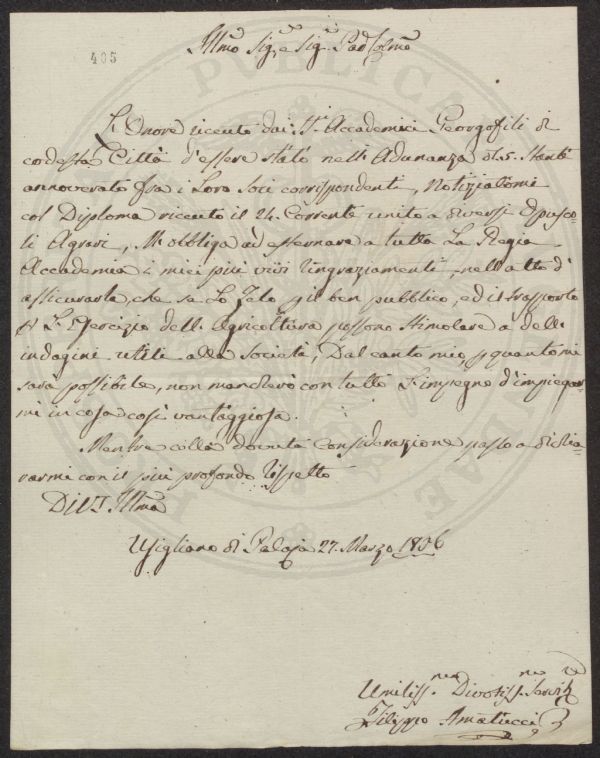 405
Illmo Sig.e e Sig.e Pad. Colmo
L'Onore ricevuto dai SS.ri Accademici Georgofili di
codesta Città d'essere stato nell'Adunanza de' 5. Stante
annoverato fra i Loro Soci corrispondenti, Notiziatomi
col Diploma ricevuto il 24. Corrente unito a diversi Opusco-
li Agrari, M'obbliga ad esternare a tutta La Regia
Accademia i miei più vivi ringraziamenti, nell'atto d'
assicurarla, che se Lo Zelo pil ben pubblico, ed il trasporto
p L'Esercizio dell'Agricoltura possono stimolare a delle
indagini utili alla Società, Dal canto mio, p quanto mi
sarà possibile, non mancherò con tutto L'impegno d'impiegar-
mi in cosa così vantaggiosa.
Mentre colla dovuta Considerazione passo a dichia-
rarmi con il più profondo rispetto
Di V.S. Illma
Usigliano di Palaja 27. Marzo 1806
Umiliss.mo Divotiss.mo Servi.re
Filippo Amatucci
PUBLICAE